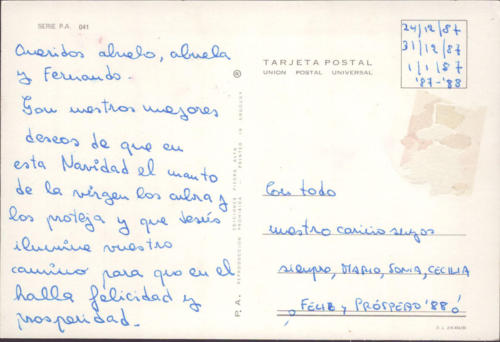 SERIE P.A. 041
Queridos abuelo, abuela
y Fernando.
Con nuestros mejores
deseos de que en
esta Navidad el manto
de la virgen los cubra y
los proteja y que Jesús
ilumine vuestro
camino para que en el
halla felicidad y
prosperidad.
P. A.
REPRODUCCION PROHIBIDA - PRINTED IN
EDICIONES
TARJETA POSTAL
UNION POSTAL UNIVERSAL
24/12/87
31/12/87
1/1/87
'87-'88
Con todo
nuestro cariño suyos
siempre, MARIO, SONIA, CECILIA
¡FELIZ y PRÓSPERO '88!